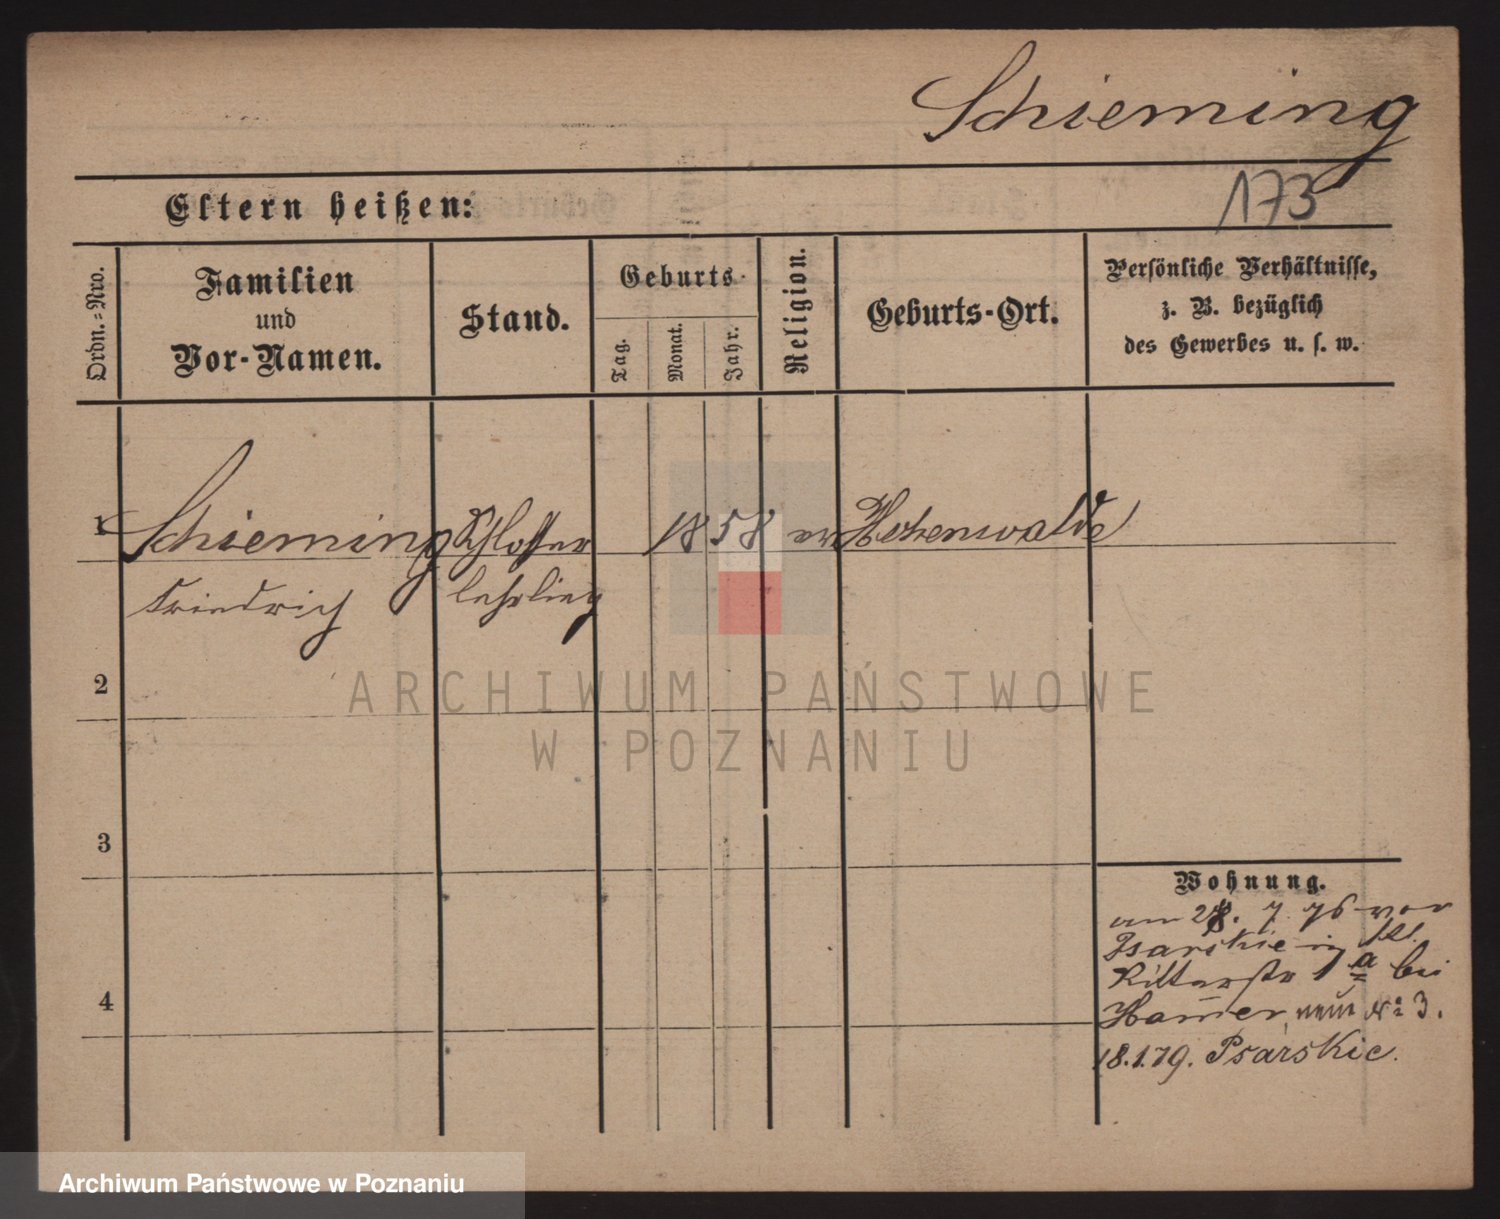 Schieming
173
Eltern heißen:
Ordn.-Nro.
Familien
und
Vor-Namen.
Stand.
Geburts-
Tag.
Monat.
Jahr.
Religion.
Geburts-Ort.
Persönliche Verhältnisse,
z. B. bezüglich
des Gewerbes u. s. w.
1 Schieming Schlosser 1858 ev Hohenwalde
Friedrich lehrling
2
ARCHIWUM PAŃSTWOWE
W POZNANIU
3
Wohnung.
am 28. 7. 76 von
Psarskie in kl.
Ritterstr 1 a bei
4
Hammer, neue No 3.
18.1.79. Psarskie.
Archiwum Państwowe w Poznaniu